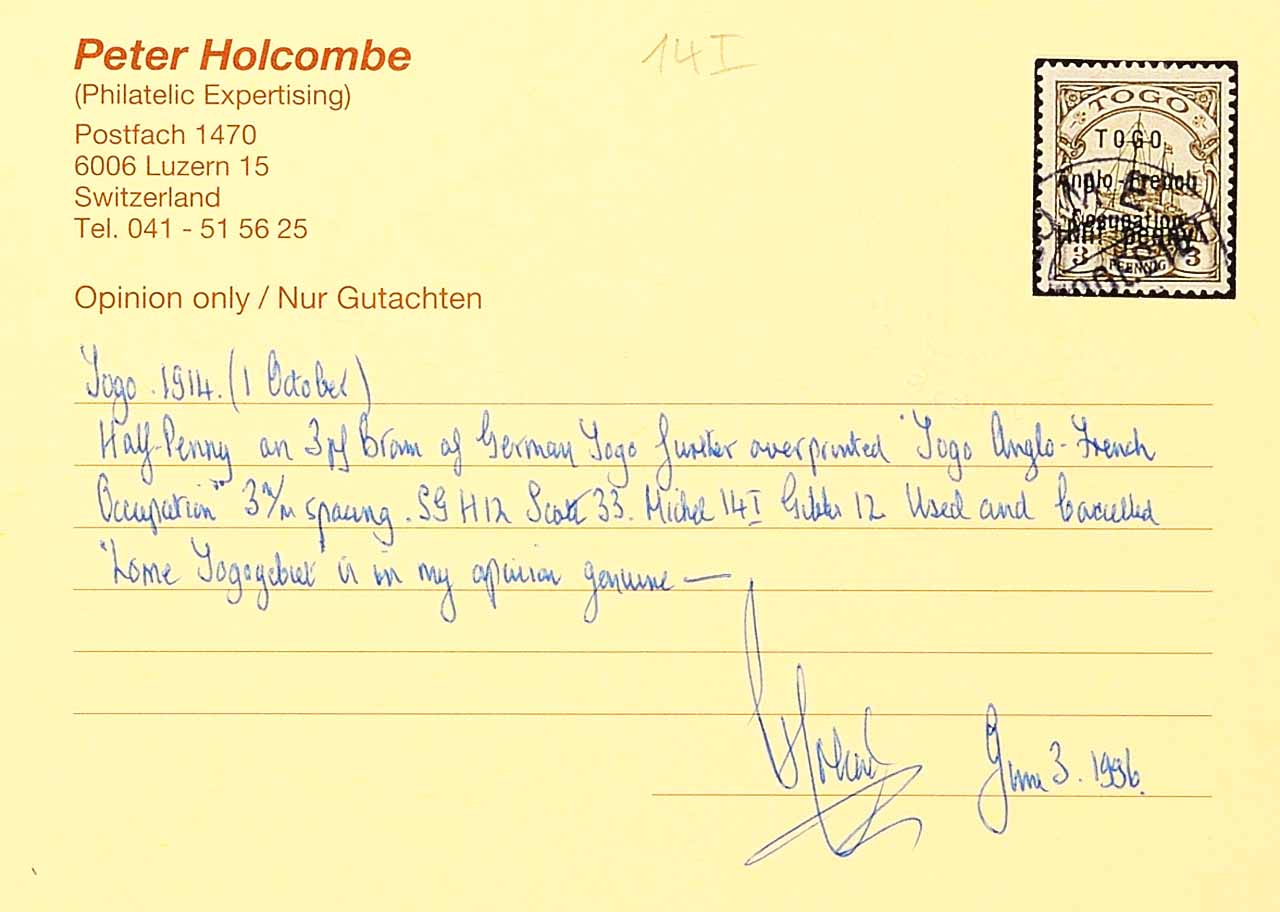 Peter Holcombe
14 I
(Philatelic Expertising)
Postfach 1470
6006 Luzern 15
Switzerland
Tel. 041 - 51 56 25
Opinion only / Nur Gutachten
TOGO
TOGO
Anglo-French
Occupation
Half penny
3 PFENNIG 3
Togo. 1914. (1 October)
Half-Penny on 3pf Brown of German Togo further overprinted "Togo Anglo-French
Occupation" 3m/m spacing. SG H12 Scott 33. Michel 14I Gibbs 12 Used and Cancelled
"Lome Togogebiet is in my opinion genuine —
June 3. 1996.